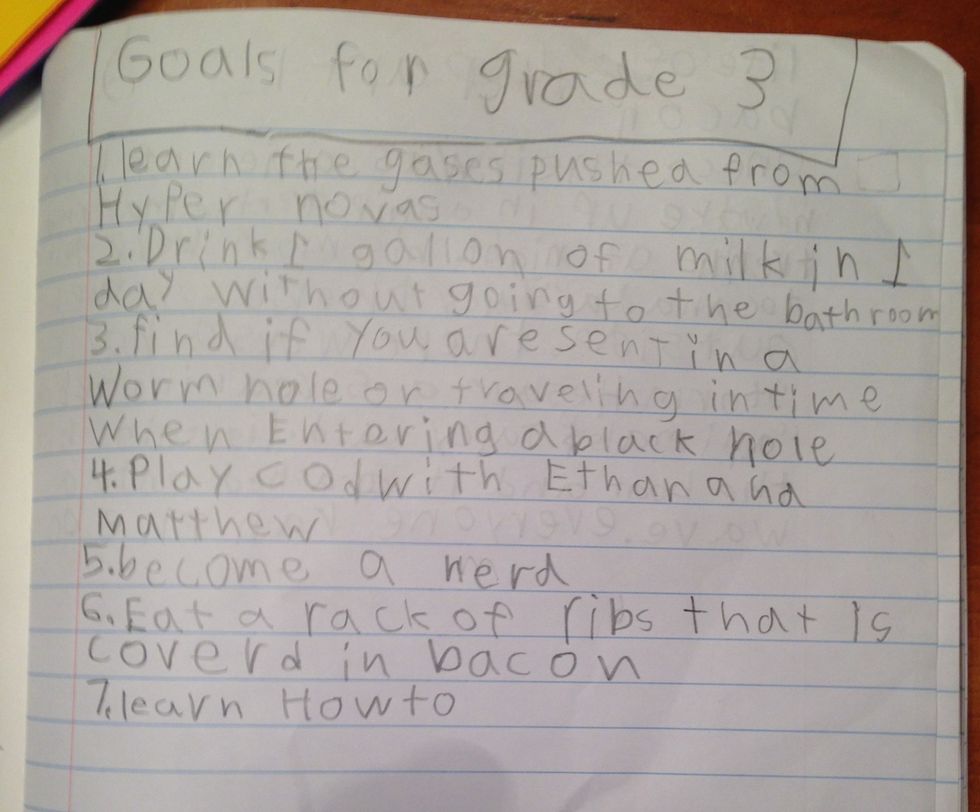 Goals for grade 3
1. learn the gases pushed from
Hyper novas
2. Drink 1 gallon of milk in 1
day without going to the bathroom
3. find if you are sent in a
worm hole or traveling in time
when Entering a black hole
4. Play cod with Ethan and
Matthew
5. become a nerd
6. Eat a rack of ribs that is
coverd in bacon
7. learn How to